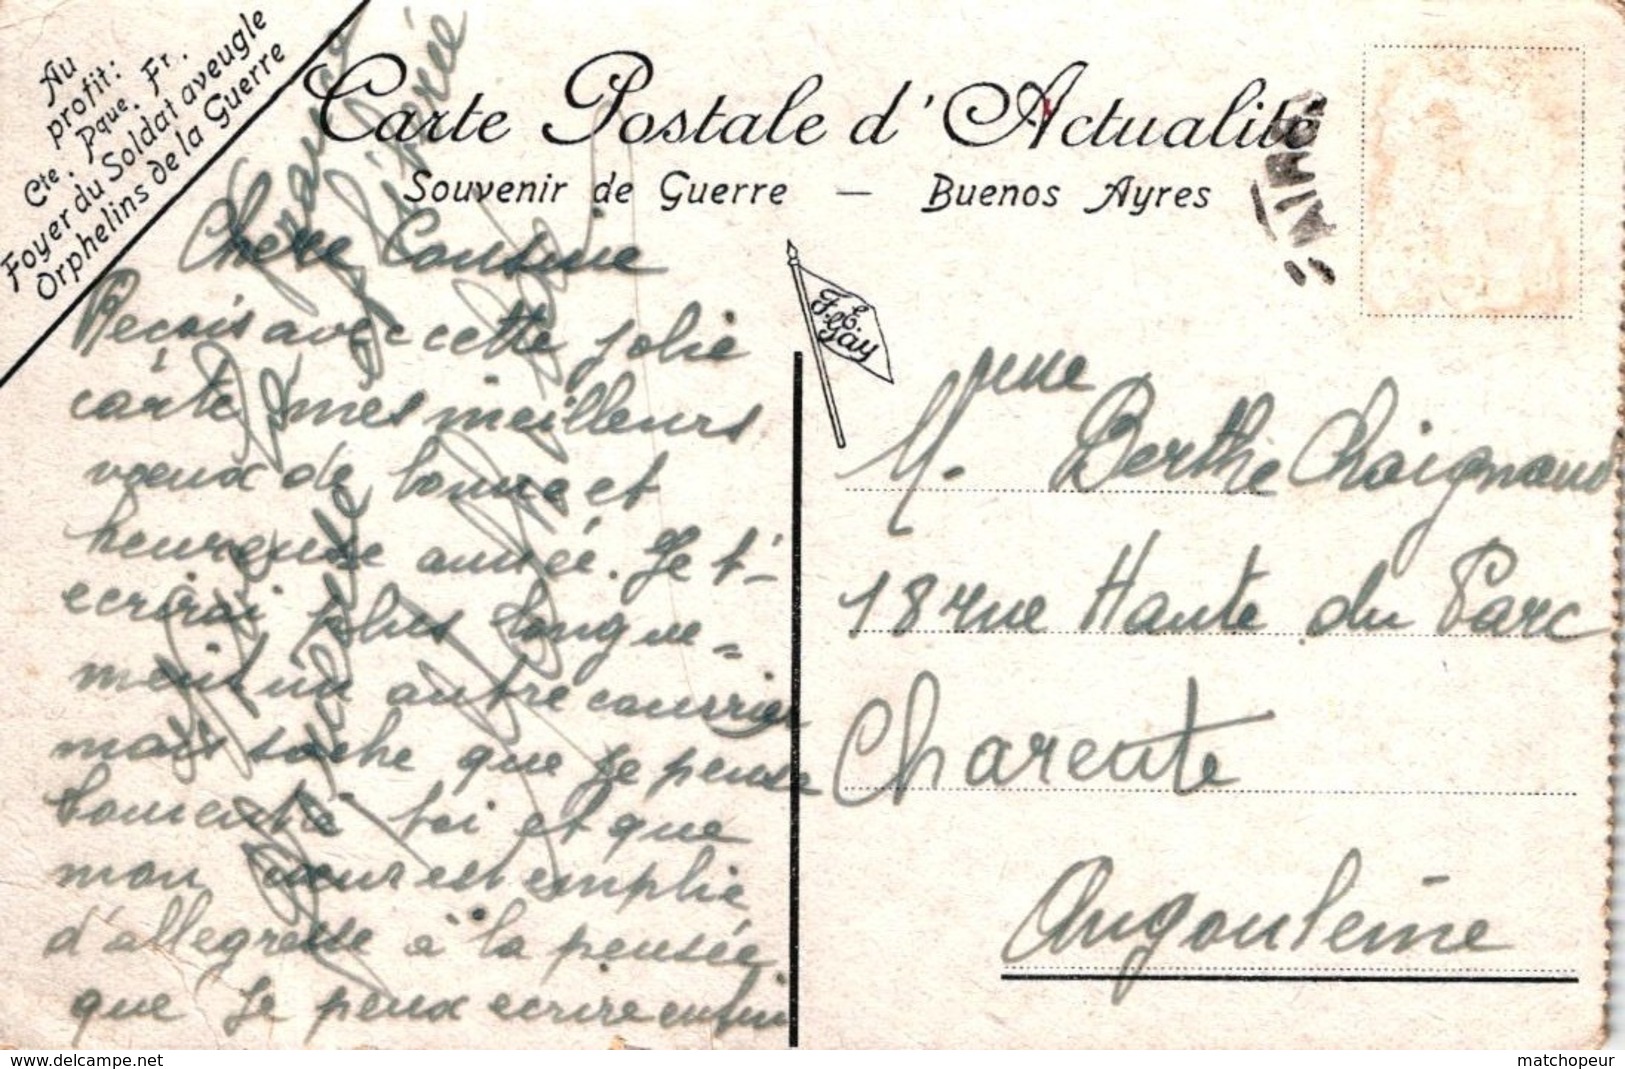 Au
profit:
Cte. Pque. Fr.
Foyer du Soldat aveugle
Orphelins de la Guerre
Carte Postale d'Actualité
Souvenir de Guerre — Buenos Ayres
AIRES
F. E.
Gay
Chère Cousine
Reçois avec cette jolie
carte mes meilleurs
vœux de bonne et
heureuse année. Je t'-
ecrirai plus longue=
ment un autre courrier
mais sache que je pense
à toi et que
mon cœur est emplie
d'allegresse à la pensée
que je peux ecrire enfin
France
libérée
Mme Berthe Chaignaud
18 rue Haute du Parc
Charente
Angoulême
matchopeur
www.delcampe.net